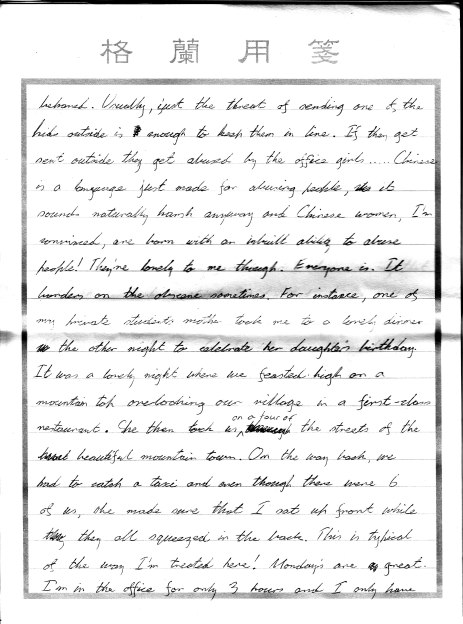 格蘭用箋
behaved. Usually, just the threat of sending one of the
kids outside is enough to keep them in line. If they get
sent outside they get abused by the office girls..... Chinese
is a language just made for abusing people, it
sounds naturally harsh anyway and Chinese women, I'm
convinced, are born with an inbuilt ability to abuse
people! They're lovely to me though. Everyone is. It
borders on the obscene sometimes. For instance, one of
my private students mother took me to a lovely dinner
the other night to celebrate her daughter's birthday.
It was a lovely night where we feasted high on a
mountain top overlooking our village in a first-class
restaurant. She then took us on a tour of the streets of the
beautiful mountain town. On the way back, we
had to catch a taxi and even though there were 6
of us, she made sure that I sat up front while
they all squeezed in the back. This is typical
of the way I'm treated here! Mondays are great.
I'm in the office for only 3 hours and I only have